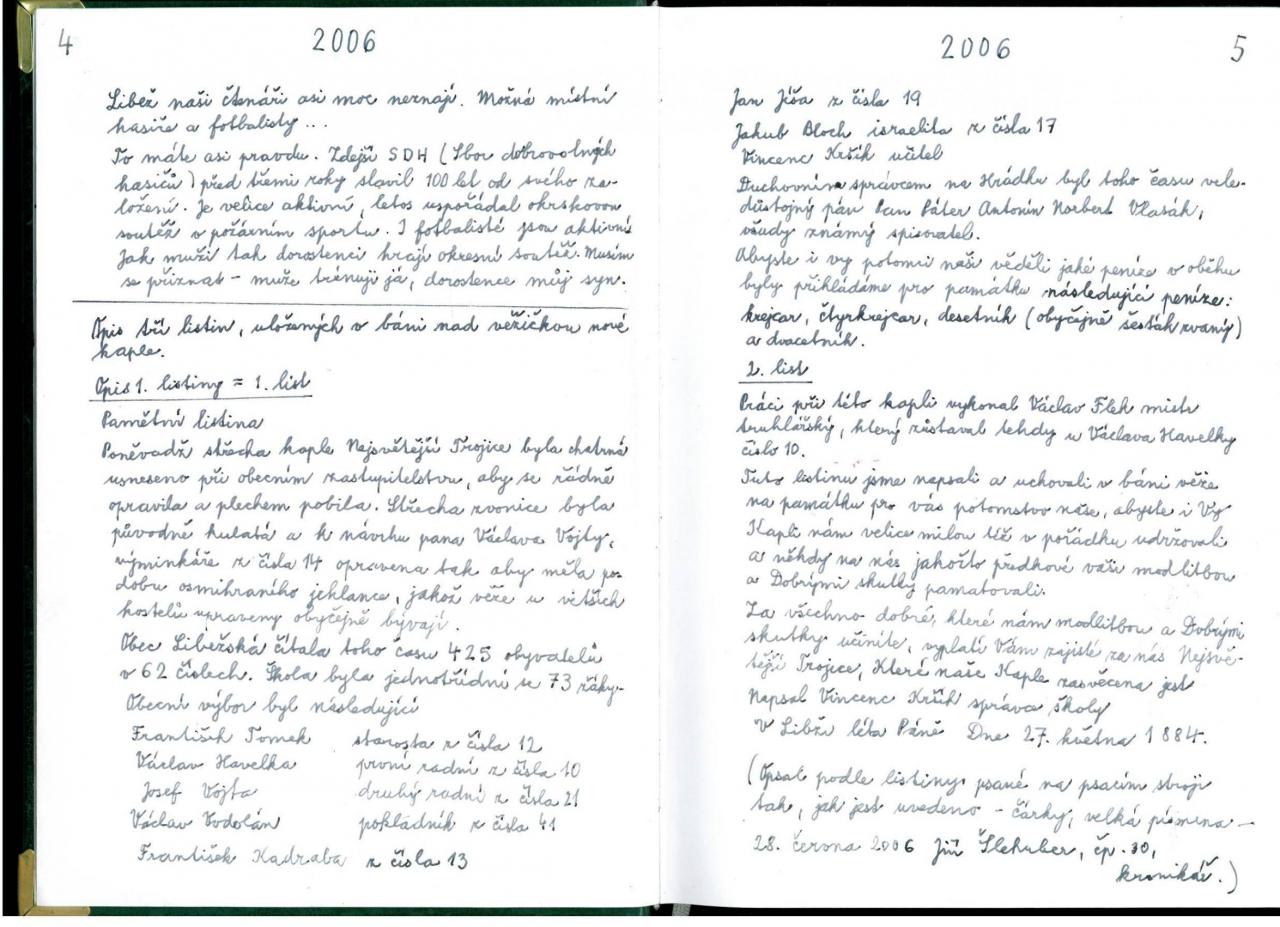 4
2006
Libež naši čtenáři asi moc neznají. Možná místní
hasiče a fotbalisty...
To máte asi pravdu. Zdejší SDH (Sbor dobrovolných
hasičů) před třemi roky slavil 100 let od svého za-
ložení. Je velice aktivní, letos uspořádal okrskovou
soutěž v požárním sportu. I fotbalisté jsou aktivní
Jak muži tak dorostenci hrají okresní soutěž. Musím
se přiznat - muže trénuji já, dorostence můj syn.
Opis tří listin, uložených v báni nad věžičkou nové
kaple.
Opis 1. listiny = 1. list
Pamětní listina
Poněvadž střecha kaple Nejsvětější Trojice byla chatrná
usneseno při obecním zastupitelstvu, aby se řádně
opravila a plechem pobila. Střecha zvonice byla
původně kulatá a k návrhu pana Václava Vojty,
výminkáře z čísla 14 opravena tak aby měla po-
dobu osmihraného jehlance, jakož věže u větších
kostelů upraveny obyčejně bývají.
Obec Libežská čítala toho času 425 obyvatelů
v 62 číslech. Škola byla jednotřídní se 73 žáky.
Obecní výbor byl následující
František Tomek starosta z čísla 12
Václav Havelka první radní z čísla 10
Josef Vojta druhý radní z čísla 21
Václav Vodolán pokladník z čísla 41
František Kadraba z čísla 13
2006
5
Jan Jíša z čísla 19
Jakub Bloch israelita z čísla 17
Vincenc Kršík učitel
Duchovním správcem na Hrádku byl toho času vele-
důstojný pán Pan Páter Antonín Norbert Vlasák,
všudy známý spisovatel.
Abyste i vy potomci naši věděli jaké peníze v oběhu
byly přikládáme pro památku následující peníze:
krejcar, čtyrkrejcar, desetník (obyčejně šesták zvaný)
a dvacetník.
2. list
Práci při této kapli vykonal Václav Flek mistr
truhlářský, který zůstaval tehdy u Václava Havelky
číslo 10.
Tuto listinu jsme napsali a uchovali v báni věže
na památku pro vás potomstvo naše, abyste i Vy
Kapli nám velice milou též v pořádku udržovali
a někdy na nás jakožto předkové vaši modlitbou
a Dobrými skutky pamatovali.
Za všechno dobré, které nám modlitbou a Dobrými
skutky učiníte, vyplatí Vám zajisté za nás Nejsvě-
tější Trojice, Které naše Kaple zasvěcena jest
Napsal Vincenc Kršík správce školy
V Libži léta Páně Dne 27. května 1884.
(Opsal podle listiny psané na psacím stroji
tak, jak jest uvedeno - čárky, velká písmena -
28. června 2006 Jiří Šlehuber, čp. 30,
kronikář.)